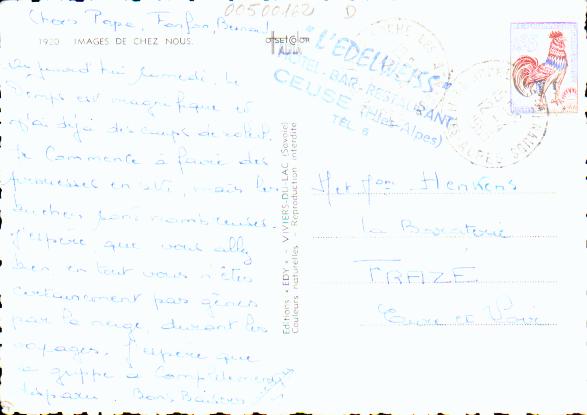 00500162 D
Chers Papa, Fanfan, Bernard
1920 IMAGES DE CHEZ NOUS.
offset color
"L'EDELWEISS"
HOTEL-BAR-RESTAURANT
CEUSE (Htes-Alpes)
TÉL. 6
Aujourd'hui samedi, le
temps est magnifique et
j'ai déjà des coups de soleil.
Je commence à faire des
prouesses en ski, mais les
bûches sont nombreuses.
J'espère que vous allez
bien en tout vous n'êtes
certainement pas gênés
par la neige, durant les
voyages. J'espère que
la grippe a complètement
disparu. Bons Baisers
Editions "EDY" - VIVIERS-DU-LAC (Savoie)
Couleurs naturelles - Reproduction interdite
Mr et Mme
La
FRAZE
Eure et Loir